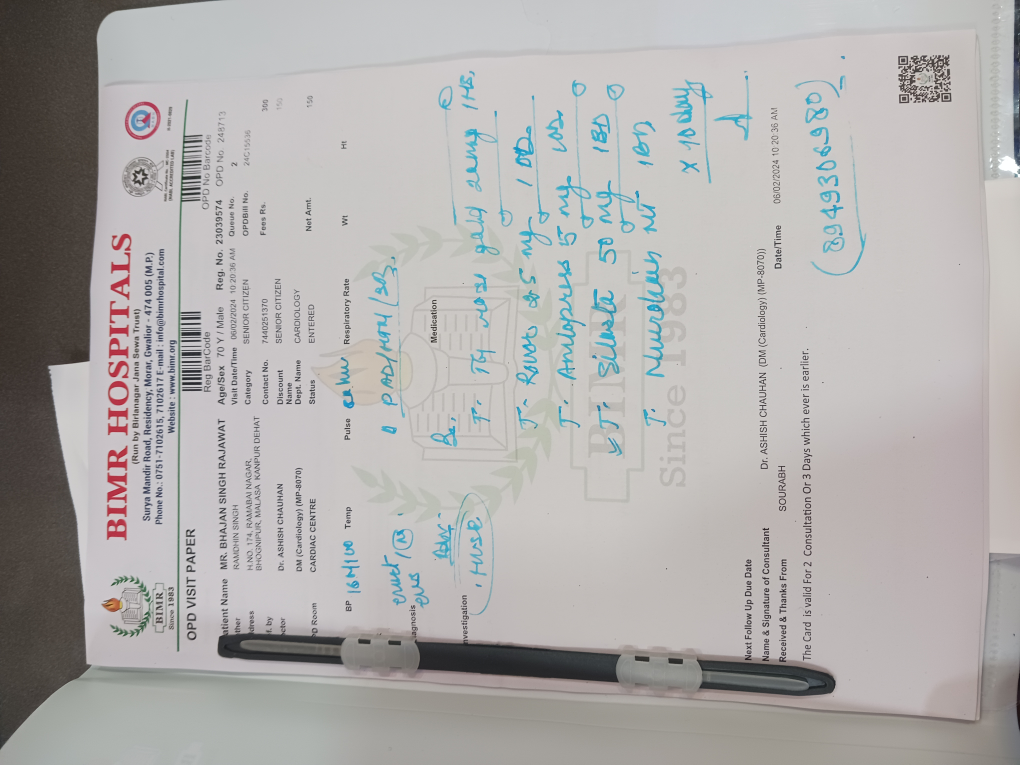 BIMR HOSPITALS
(Run by Birlanagar Jana Sewa Trust)
Surya Mandir Road, Residency, Morar, Gwalior - 474 005 (M.P.)
Phone No.: 0751-7102615, 7102617 E-mail : info@bimrhospital.com
Website : www.bimr.org
BIMR
Since 1983
OPD VISIT PAPER
Reg BarCode
OPD No Barcode
atient Name MR. BHAJAN SINGH RAJAWAT Age/Sex 70 Y / Male Reg. No. 23039574 OPD No. 248713
ather RAMDHIN SINGH Visit Date/Time 06/02/2024 10:20:36 AM Queue No. 2
dress H.NO. 174, RAMABAI NAGAR, Category SENIOR CITIZEN OPDBill No. 24C15636
BHOGNIPUR, MALASA KANPUR DEHAT Contact No. 7440251370 Fees Rs. 300
f. by Discount Name SENIOR CITIZEN 150
ctor Dr. ASHISH CHAUHAN
DM (Cardiology) (MP-8070) Dept. Name CARDIOLOGY Net Amt. 150
PD Room CARDIAC CENTRE Status ENTERED
BP Temp Pulse Respiratory Rate Wt Ht
PAD/HTN/
agnosis
Medication
nvestigation
T. gold 1HS,
T. 5 mg 1OD
T. Amlopress 5 mg 1OD
T. 50 mg 1BD
T. NT. 1BD
x 10 day
BIMR
Since 1983
Next Follow Up Due Date
Name & Signature of Consultant Dr. ASHISH CHAUHAN (DM (Cardiology) (MP-8070)) Date/Time 06/02/2024 10:20:36 AM
Received & Thanks From SOURABH
The Card is valid For 2 Consultation Or 3 Days which ever is earlier.
(8949306980)